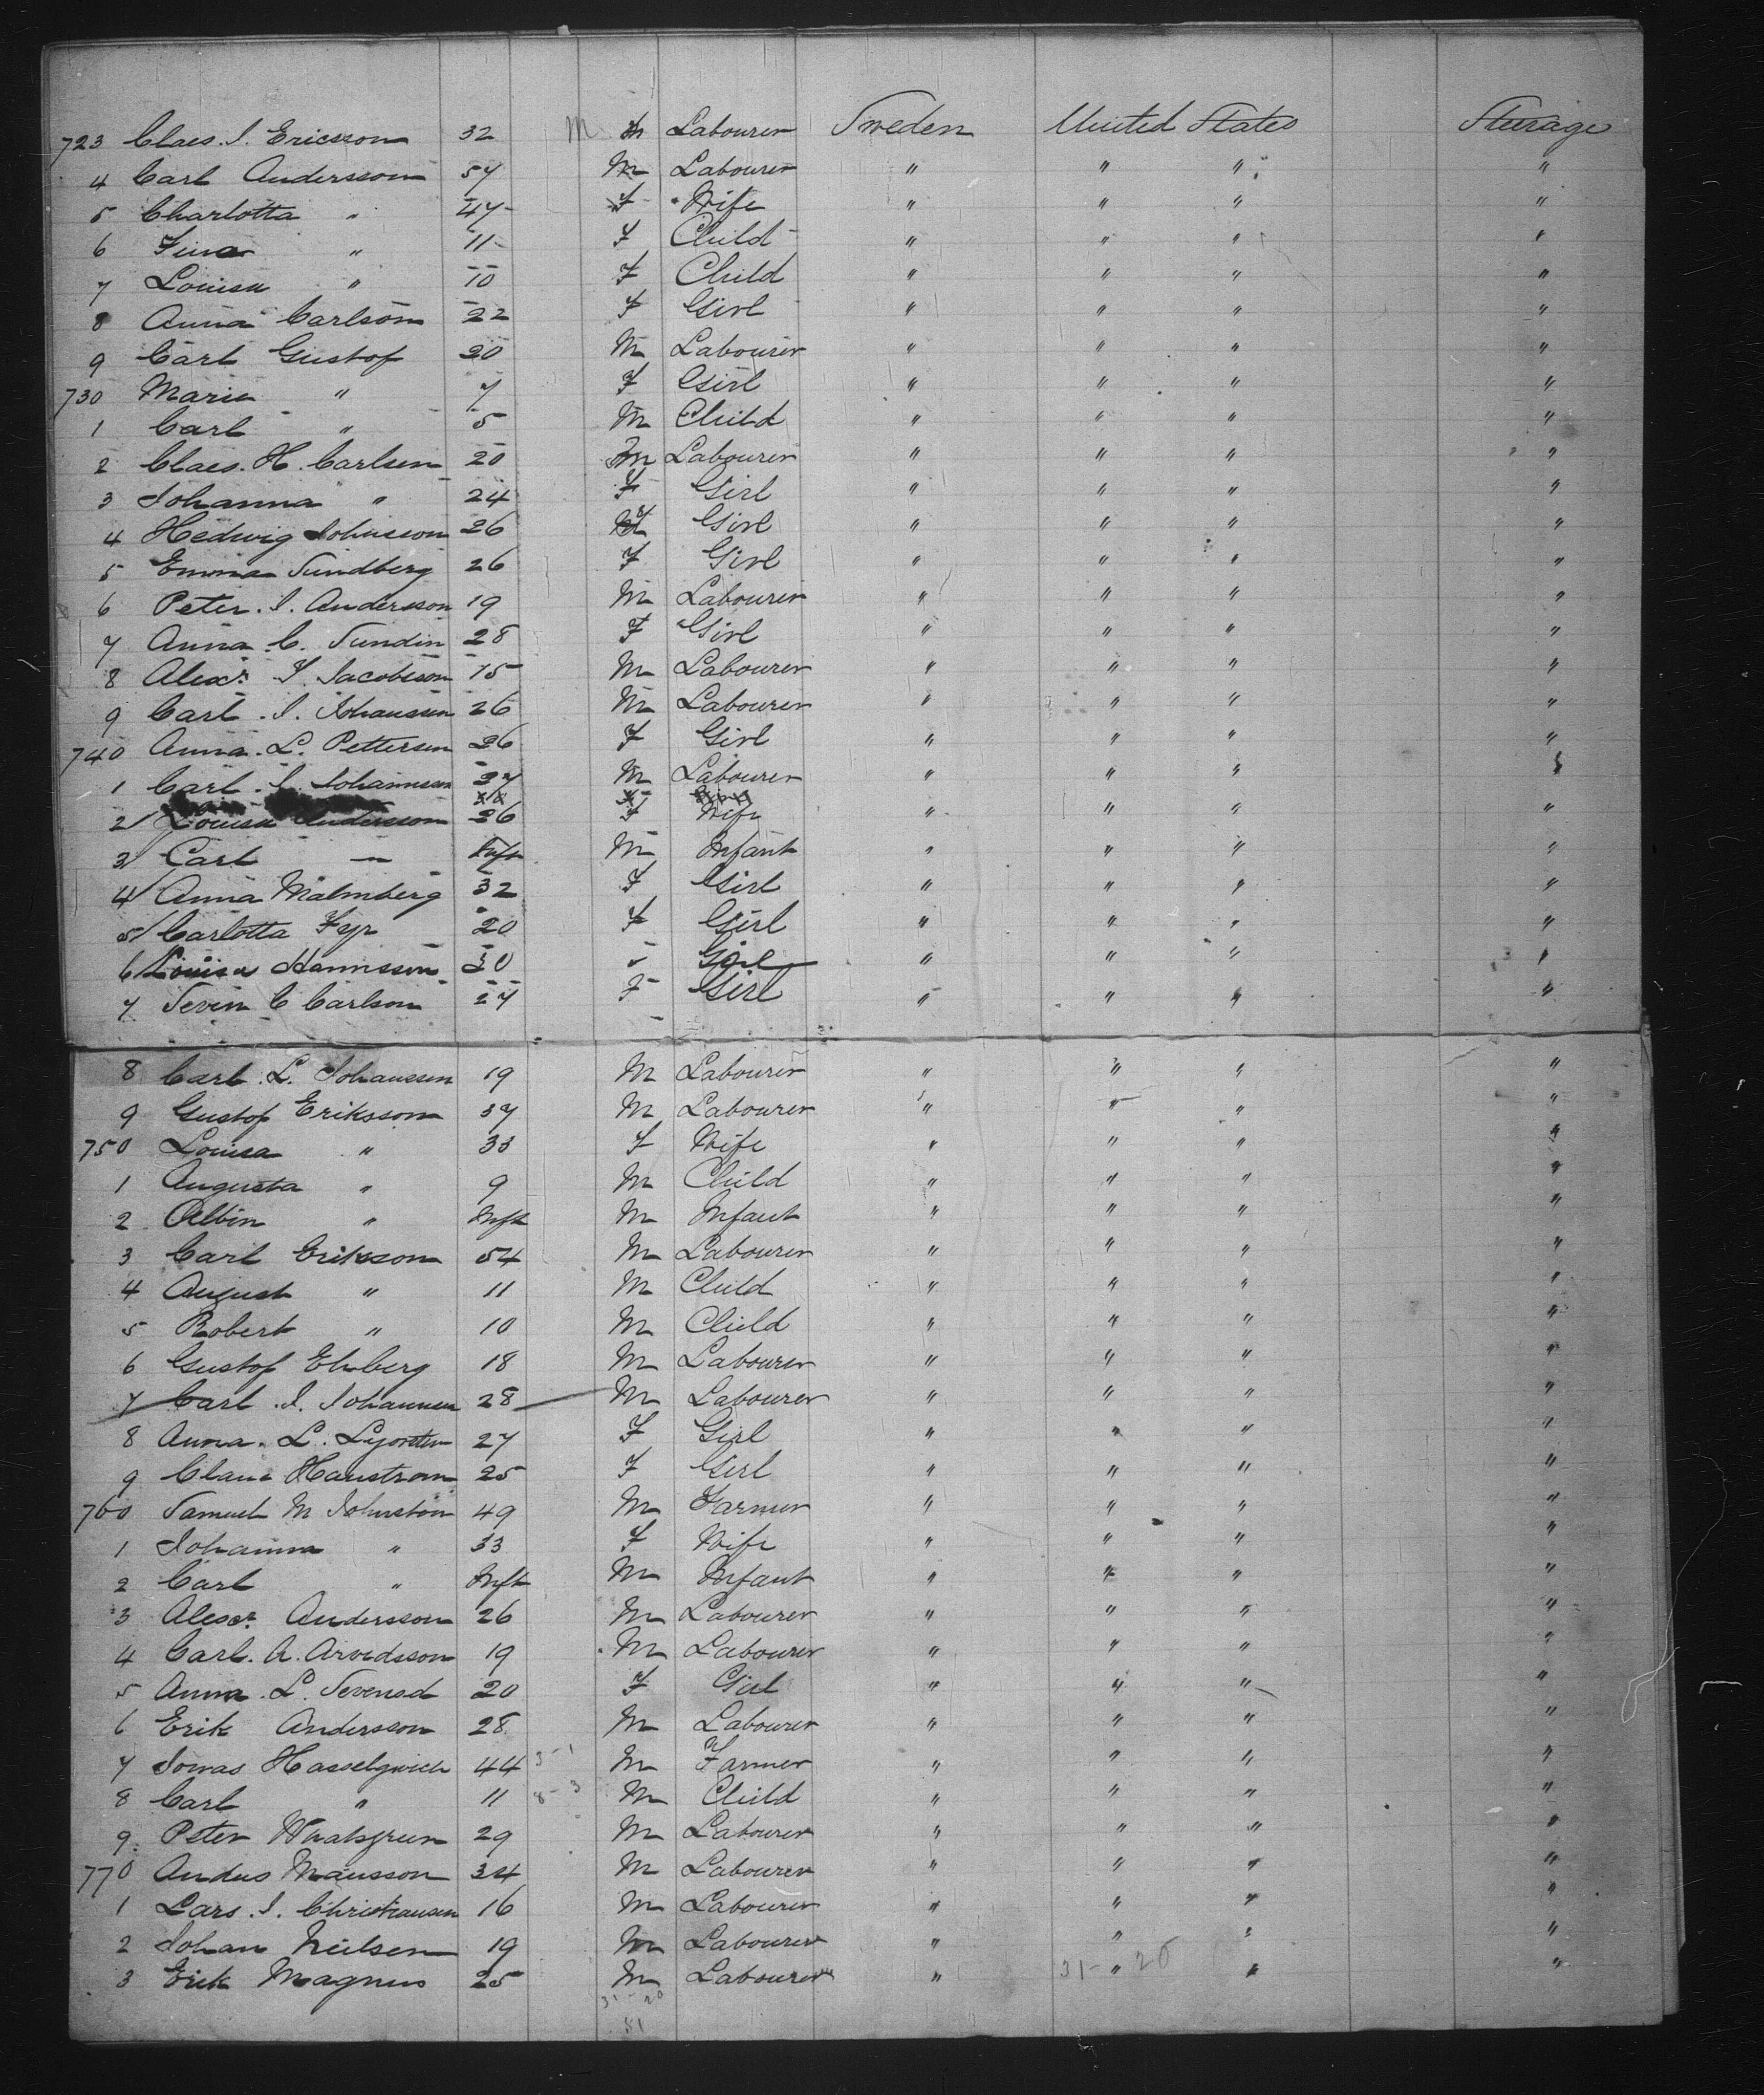 723 Claes. I. Ericsson 32 M m Labourer Sweden United States Steerage
4 Carl Andersson 57 M Labourer " " " "
5 Charlotta " 47 F Wife " " " "
6 Fina " 11 F Child " " " "
7 Louisa " 10 F Child " " " "
8 Anna Carlson 22 F Girl " " " "
9 Carl Gustof 20 M Labourer " " " "
730 Maria " 7 F Girl " " " "
1 Carl " 5 M Child " " " "
2 Claes. H. Carlsen 20 M Labourer " " " "
3 Johanna " 24 F Girl " " " "
4 Hedwig Johnsson 26 F Girl " " " "
5 Emma Sundberg 26 F Girl " " " "
6 Peter. I. Andersson 19 M Labourer " " " "
7 Anna. C. Sundin 28 F Girl " " " "
8 Alexr. F. Jacobson 15 M Labourer " " " "
9 Carl. I. Johanssen 26 M Labourer " " " "
740 Anna. L. Pettersen 26 F Girl " " " "
1 Carl. I. Johannsen 27 M Labourer " " " "
2 Louisa Andersson 26 F Wife " " " "
3 Carl — Inft M Infant " " " "
4 Anna Malmberg 32 F Girl " " " "
5 Carlotta Fyr 20 F Girl " " " "
6 Louisa Hannsson 30 Girl " " " "
7 Severin C Carlson 27 F Girl " " " "
8 Carl. L. Johanssen 19 M Labourer " " " "
9 Gustof Eriksson 37 M Labourer " " " "
750 Louisa " 33 F Wife " " " "
1 Augusta " 9 M Child " " " "
2 Albin " Inft M Infant " " " "
3 Carl Eriksson 54 M Labourer " " " "
4 August " 11 M Child " " " "
5 Robert " 10 M Child " " " "
6 Gustof Ehberg 18 M Labourer " " " "
7 Carl. I. Johannsen 28 M Labourer " " " "
8 Anna. L. 27 F Girl " " " "
9 Clara Haustrom 25 F Girl " " " "
760 Samuel M Johnston 49 M Farmer " " " "
1 Johanna " 33 F Wife " " " "
2 Carl " Inft M Infant " " " "
3 Alexr. Andersson 26 M Labourer " " " "
4 Carl. A. Arvidsson 19 M Labourer " " " "
5 Anna. L. 20 F Girl " " " "
6 Erik Andersson 28 M Labourer " " " "
7 Jonas 44 M Farmer " " " "
8 Carl " 11 M Child " " " "
9 Peter 29 M Labourer " " " "
770 Andus Mansson 34 M Labourer " " " "
1 Lars. I. Christiansen 16 M Labourer " " " "
2 Johan Neilsen 19 M Labourer " " " "
3 Erik Magnus 25 M Labourer " " " "